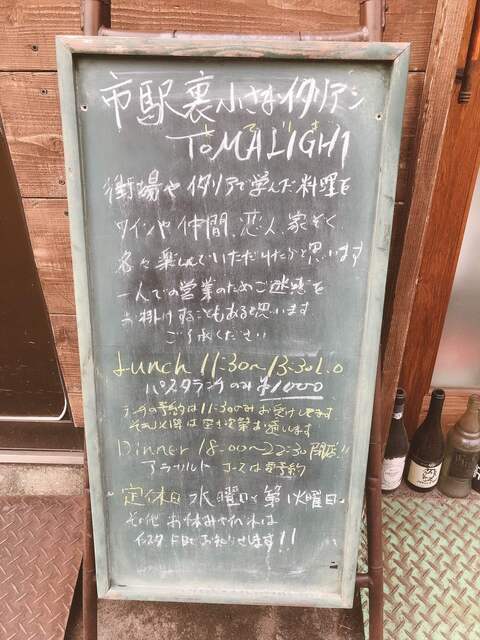 市駅裏小さなイタリアン
ToMALiGHi
街場やイタリアで学んだ料理を
ワインや仲間、恋人、家ぞく
各々楽しんでいただけたらと思います
一人での営業のためご迷惑を
お掛けすることもあると思います
ご了承ください
Lunch 11:30〜13:30 L.o
パスタランチのみ ¥1000
ランチの予約は11:30のみお受けしてます
それ以降は空き次第お通しします
Dinner 18:00〜22:30 閉店!!
アラカルト コースは要予約
定休日 水曜日と第1火曜日
その他お休みであれば
インスタ、FBでお知らせします!!